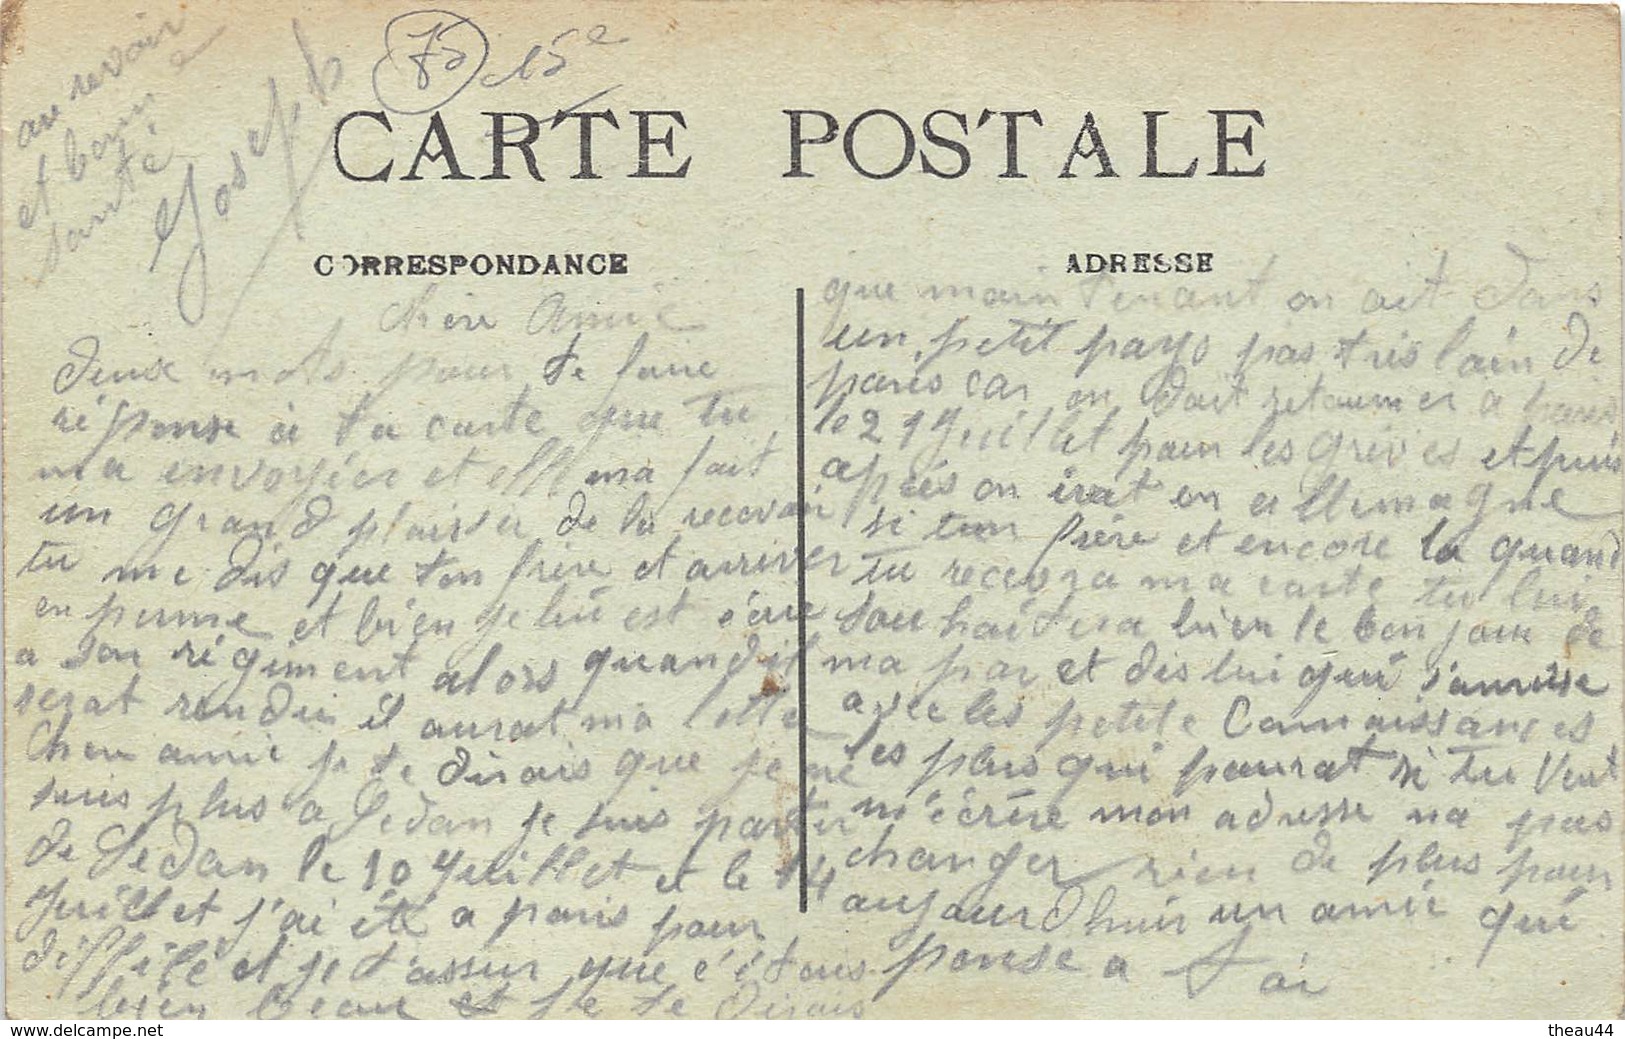 au revoir
et bonne
santé
Joseph
75 15e
CARTE POSTALE
CORRESPONDANCE
ADRESSE
chère Amie
deux mots pour te faire
réponse a ta carte que tu
ma envoyées et elle ma fait
un grand plaisir de la recevoir
tu me dis que ton frère et arriver
en et bien je lui est
a son régiment alors quand il
serat rendu il aurat ma lettre
Cher amie je te dirais que je ne
suis plus a Sedan je suis partir
de Sedan le 10 Juillet et le 14
Juillet j'ai été a paris pour
difflilé et je t'assur que c'étais
bien beau et je te dirais
que maintenant on ait dans
un petit pays pas tres lain de
paris car on doit retourner a paris
le 21 Juillet pour les grèves et puis
après on irat en allemagne
si ton frère et encore la quand
tu recevra ma carte tu lui
souhaitera bien le bonjour de
ma par et dis lui qui s'amuse
avec les petite Connaissances
les plus qui pourat si tu veut
m'écrire mon adresse na pas
changer rien de plus pour
aujourd'huir un amie qui
panse a Toi
www.delcampe.net
theau44